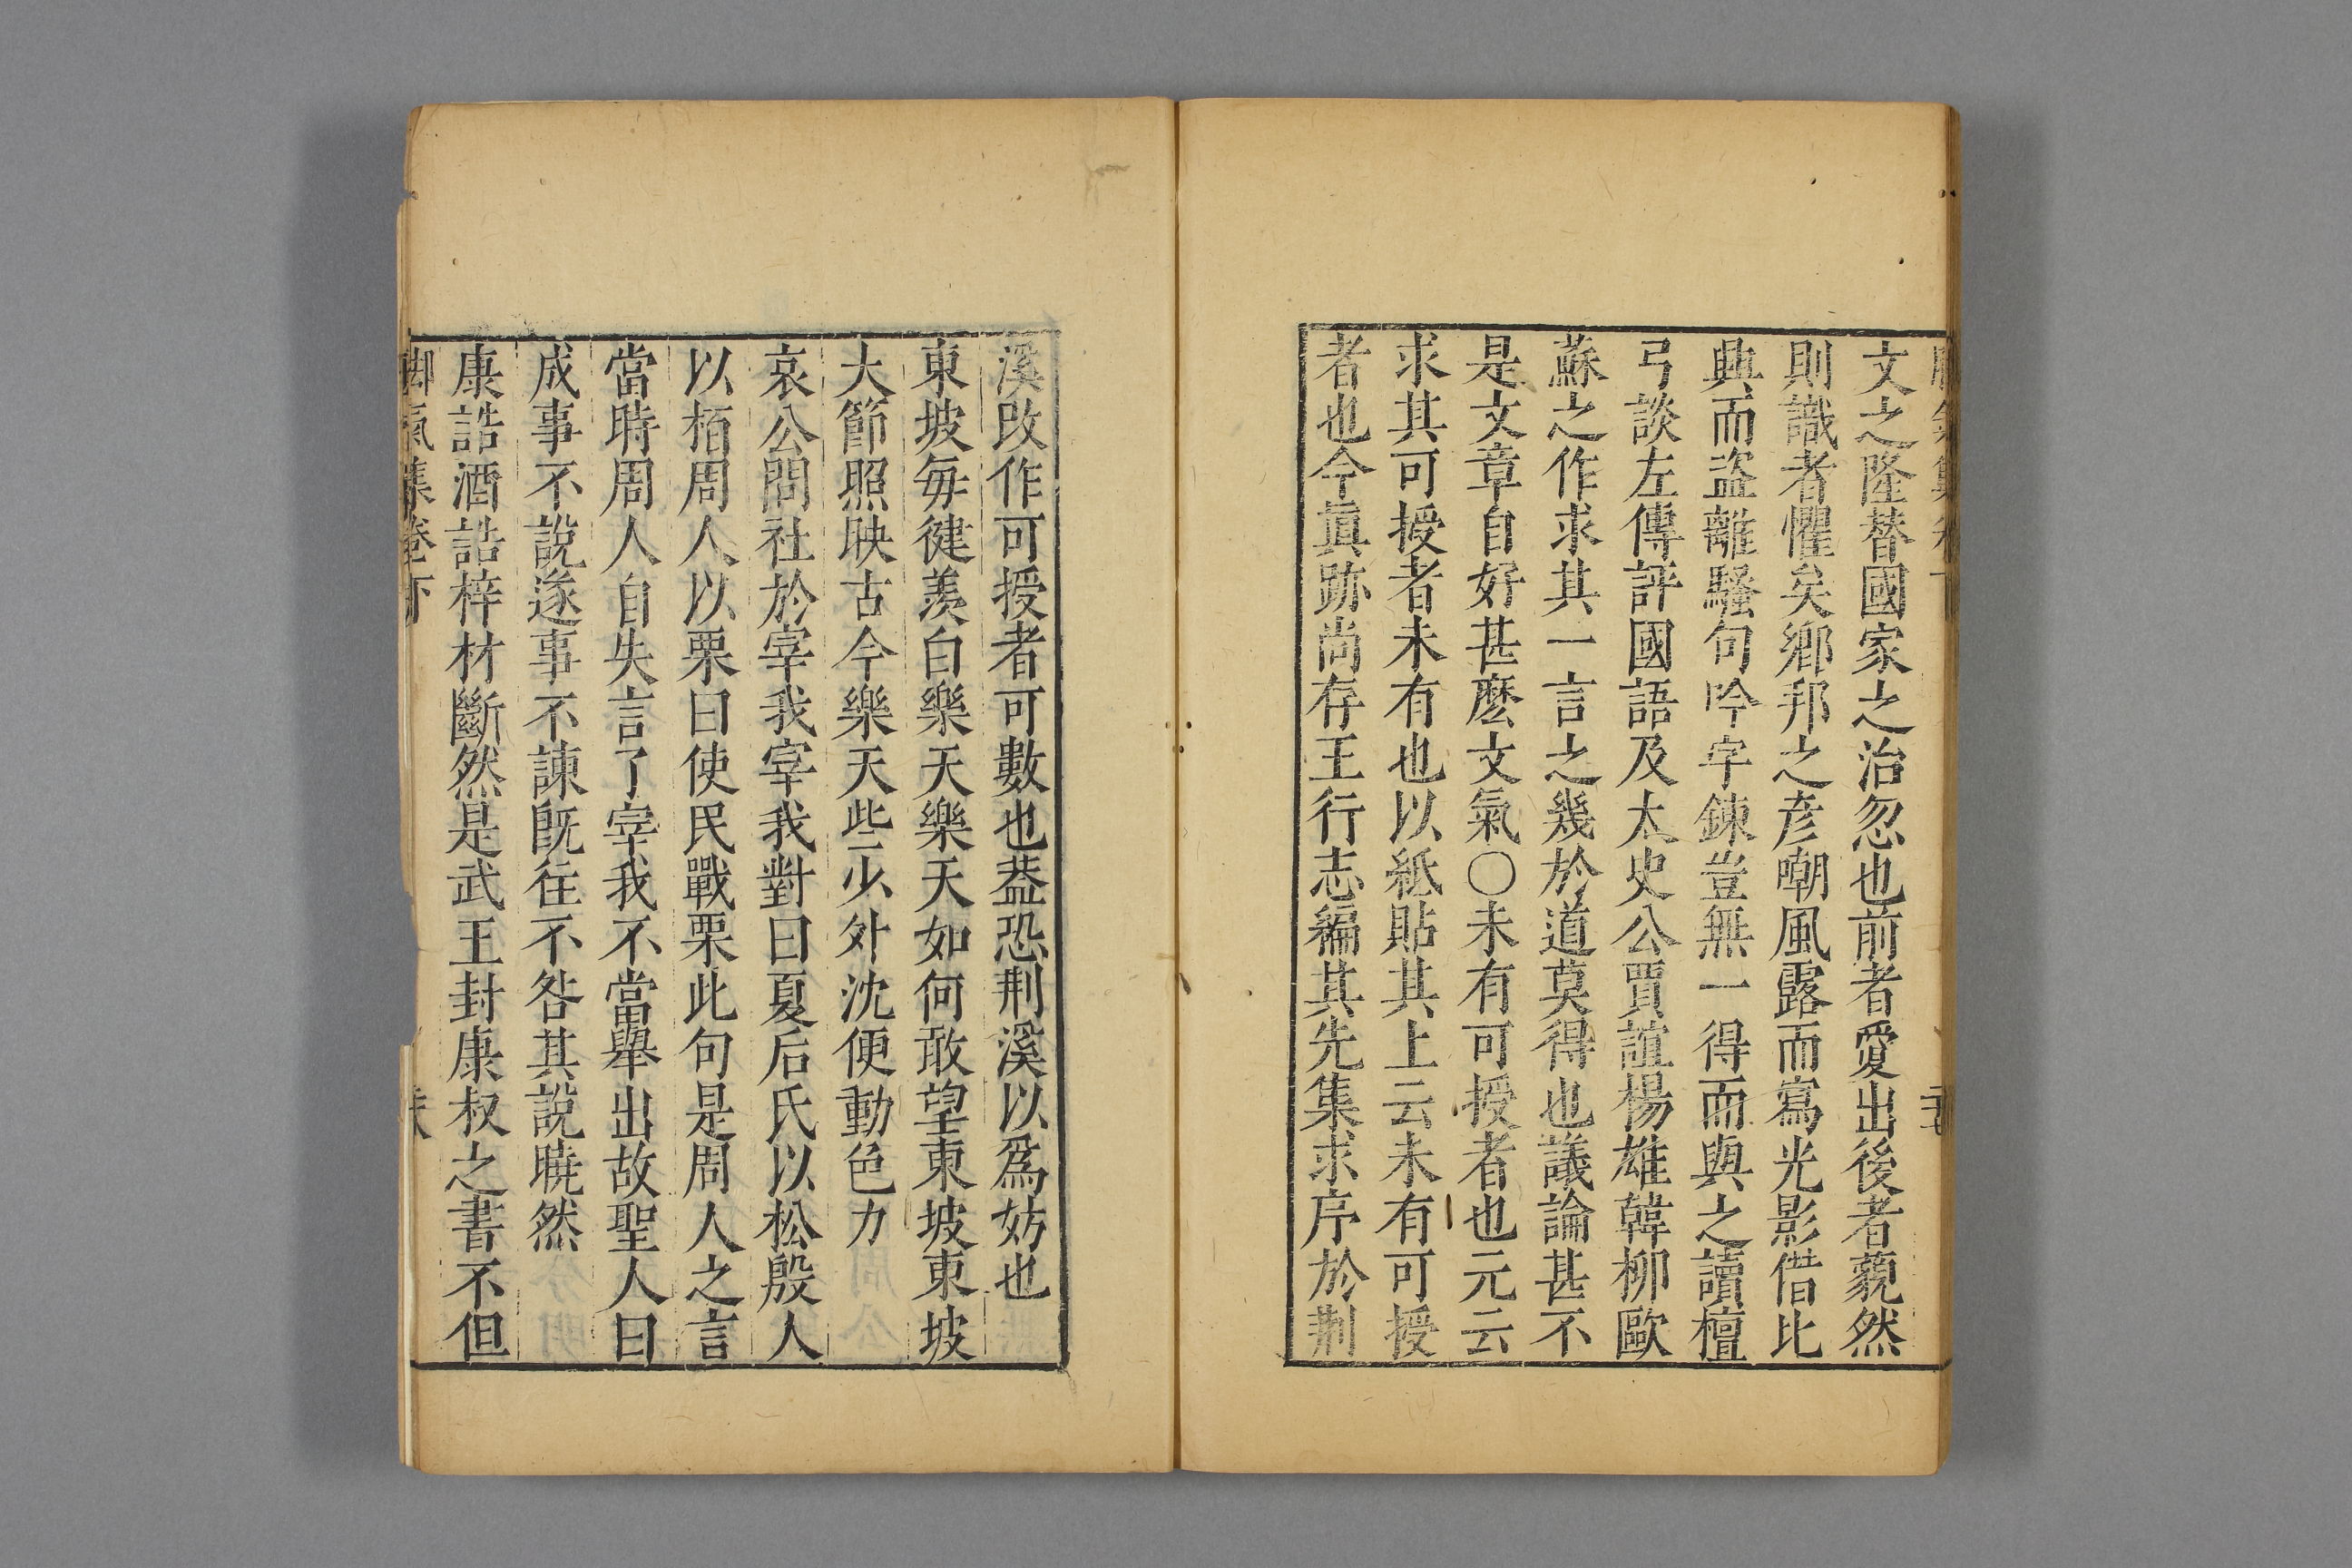 文之隆替國家之治忽也前者愛出後者藐然
則識者懼矣鄉邦之彦嘲風露而寫光影借比
典而盜離騷句吟字鍊豈無一得而與之讀檀
弓談左傳評國語及太史公賈誼楊雄韓柳歐
蘇之作求其一言之幾於道莫得也議論甚不
是文章自好甚麽文氣○未有可授者也元云
求其可授者未有也以紙貼其上云未有可授
者也今眞跡尚存王行志編其先集求序於荆
溪改作可授者可數也葢恐荆溪以爲妨也
東坡每徤羨白樂天樂天如何敢望東坡東坡
大節照映古今樂天些少外沈便動色力
哀公問社於宰我宰我對曰夏后氏以松殷人
以栢周人以栗曰使民戰栗此句是周人之言
當時周人自失言了宰我不當舉出故聖人曰
成事不說遂事不諫既往不咎其說曉然
康誥酒誥梓材斷然是武王封康叔之書不但
脚氣集卷下